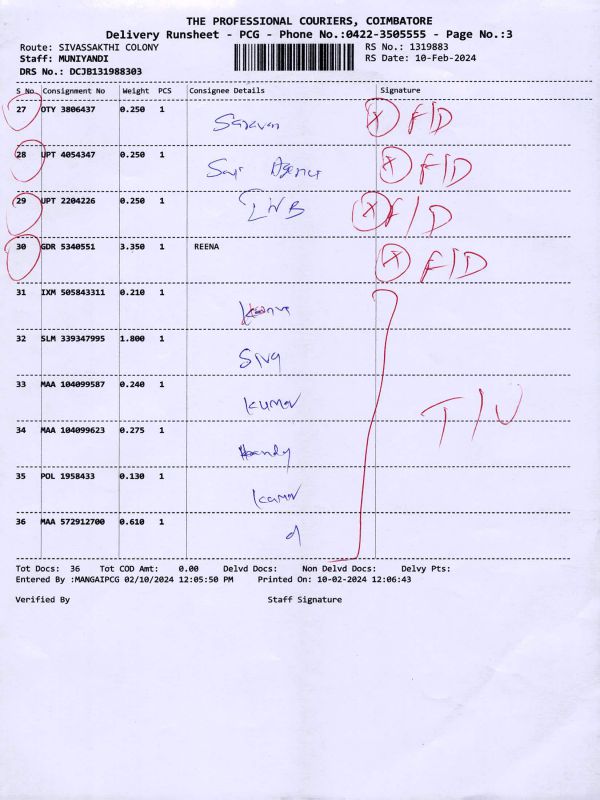 THE PROFESSIONAL COURIERS, COIMBATORE
Delivery Runsheet - PCG - Phone No.:0422-3505555 - Page No.:3
Route: SIVASSAKTHI COLONY RS No.: 1319883
Staff: MUNIYANDI RS Date: 10-Feb-2024
DRS No.: DCJB131988303
S No. Consignment No Weight PCS Consignee Details Signature
27 OTY 3806437 0.250 1 Saravan F/D
28 UPT 4054347 0.250 1 F/D
29 UPT 2204226 0.250 1 F/D
30 GDR 5340551 3.350 1 REENA F/D
31 IXM 505843311 0.210 1
32 SLM 339347995 1.800 1 Siva
33 MAA 104099587 0.240 1 Kumar
34 MAA 104099623 0.275 1
35 POL 1958433 0.130 1 Kumar
36 MAA 572912700 0.610 1
Tot Docs: 36 Tot COD Amt: 0.00 Delvd Docs: Non Delvd Docs: Delvy Pts:
Entered By :MANGAIPCG 02/10/2024 12:05:50 PM Printed On: 10-02-2024 12:06:43
Verified By Staff Signature